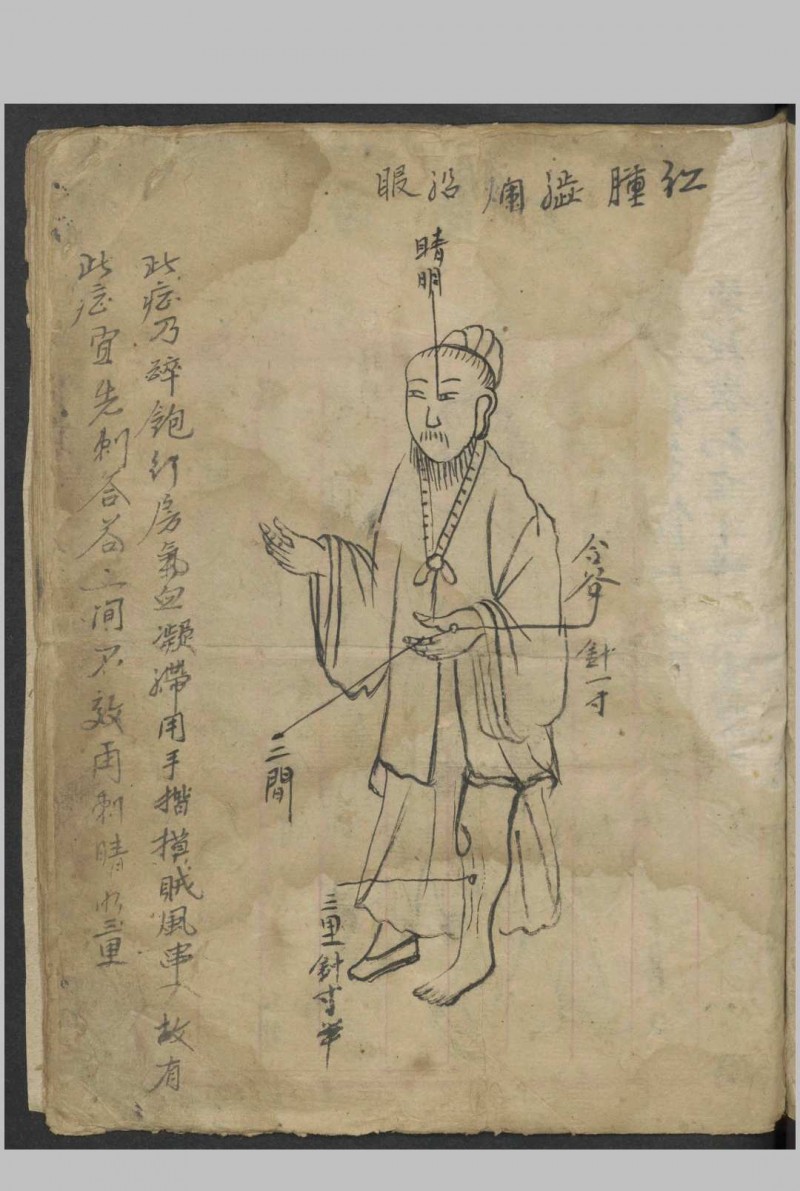 紅腫澁爛沿眼
睛明
合谷
針一寸
三間
三里針寸半
此症乃碎飽行房氣血凝滯用手揩摸賊風串入故有
此症宜先刺合谷三间不效再刺睛明三里